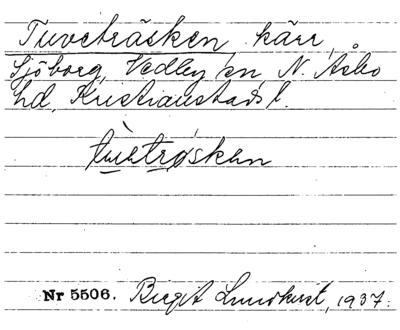 Tuveträsken, kärr,
Sjöborg, Vedby sn, N. Åsbo
hd, Kristianstads l.
tùvətrǿskən
Nr 5506. Birgit Lundkvist, 1937.